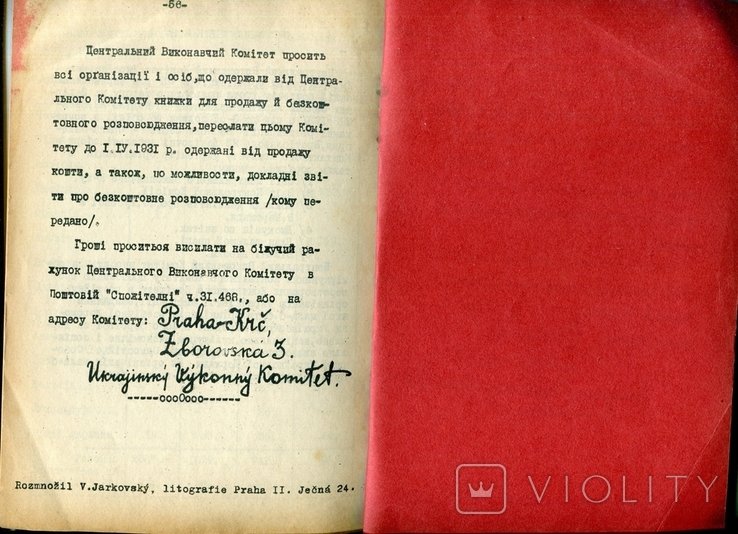 -56-
Центральний Виконавчий Комітет просить
всі орґанізації і осіб,що одержали від Центра-
льного Комітету книжки для продажу й безкош-
товного розповсюдження,переслати цьому Комі-
тету до I.IV.1931 р. одержані від продажу
кошти, а також, по можливости, докладні зві-
ти про безкоштовне розповсюдження /кому пе-
редано/.
Гроші проситься висилати на біжучий ра-
хунок Центрального Виконавчого Комітету в
Поштовій "Спожітелні" ч.31.468., або на
адресу Комітету: Praha-Krč,
Zborovská 3.
Ukrajinský Výkonný Komitet.
-----ооо0ооо------
Rozmnožil V.Jarkovský, litografie Praha II. Ječná 24.
VIOLITY